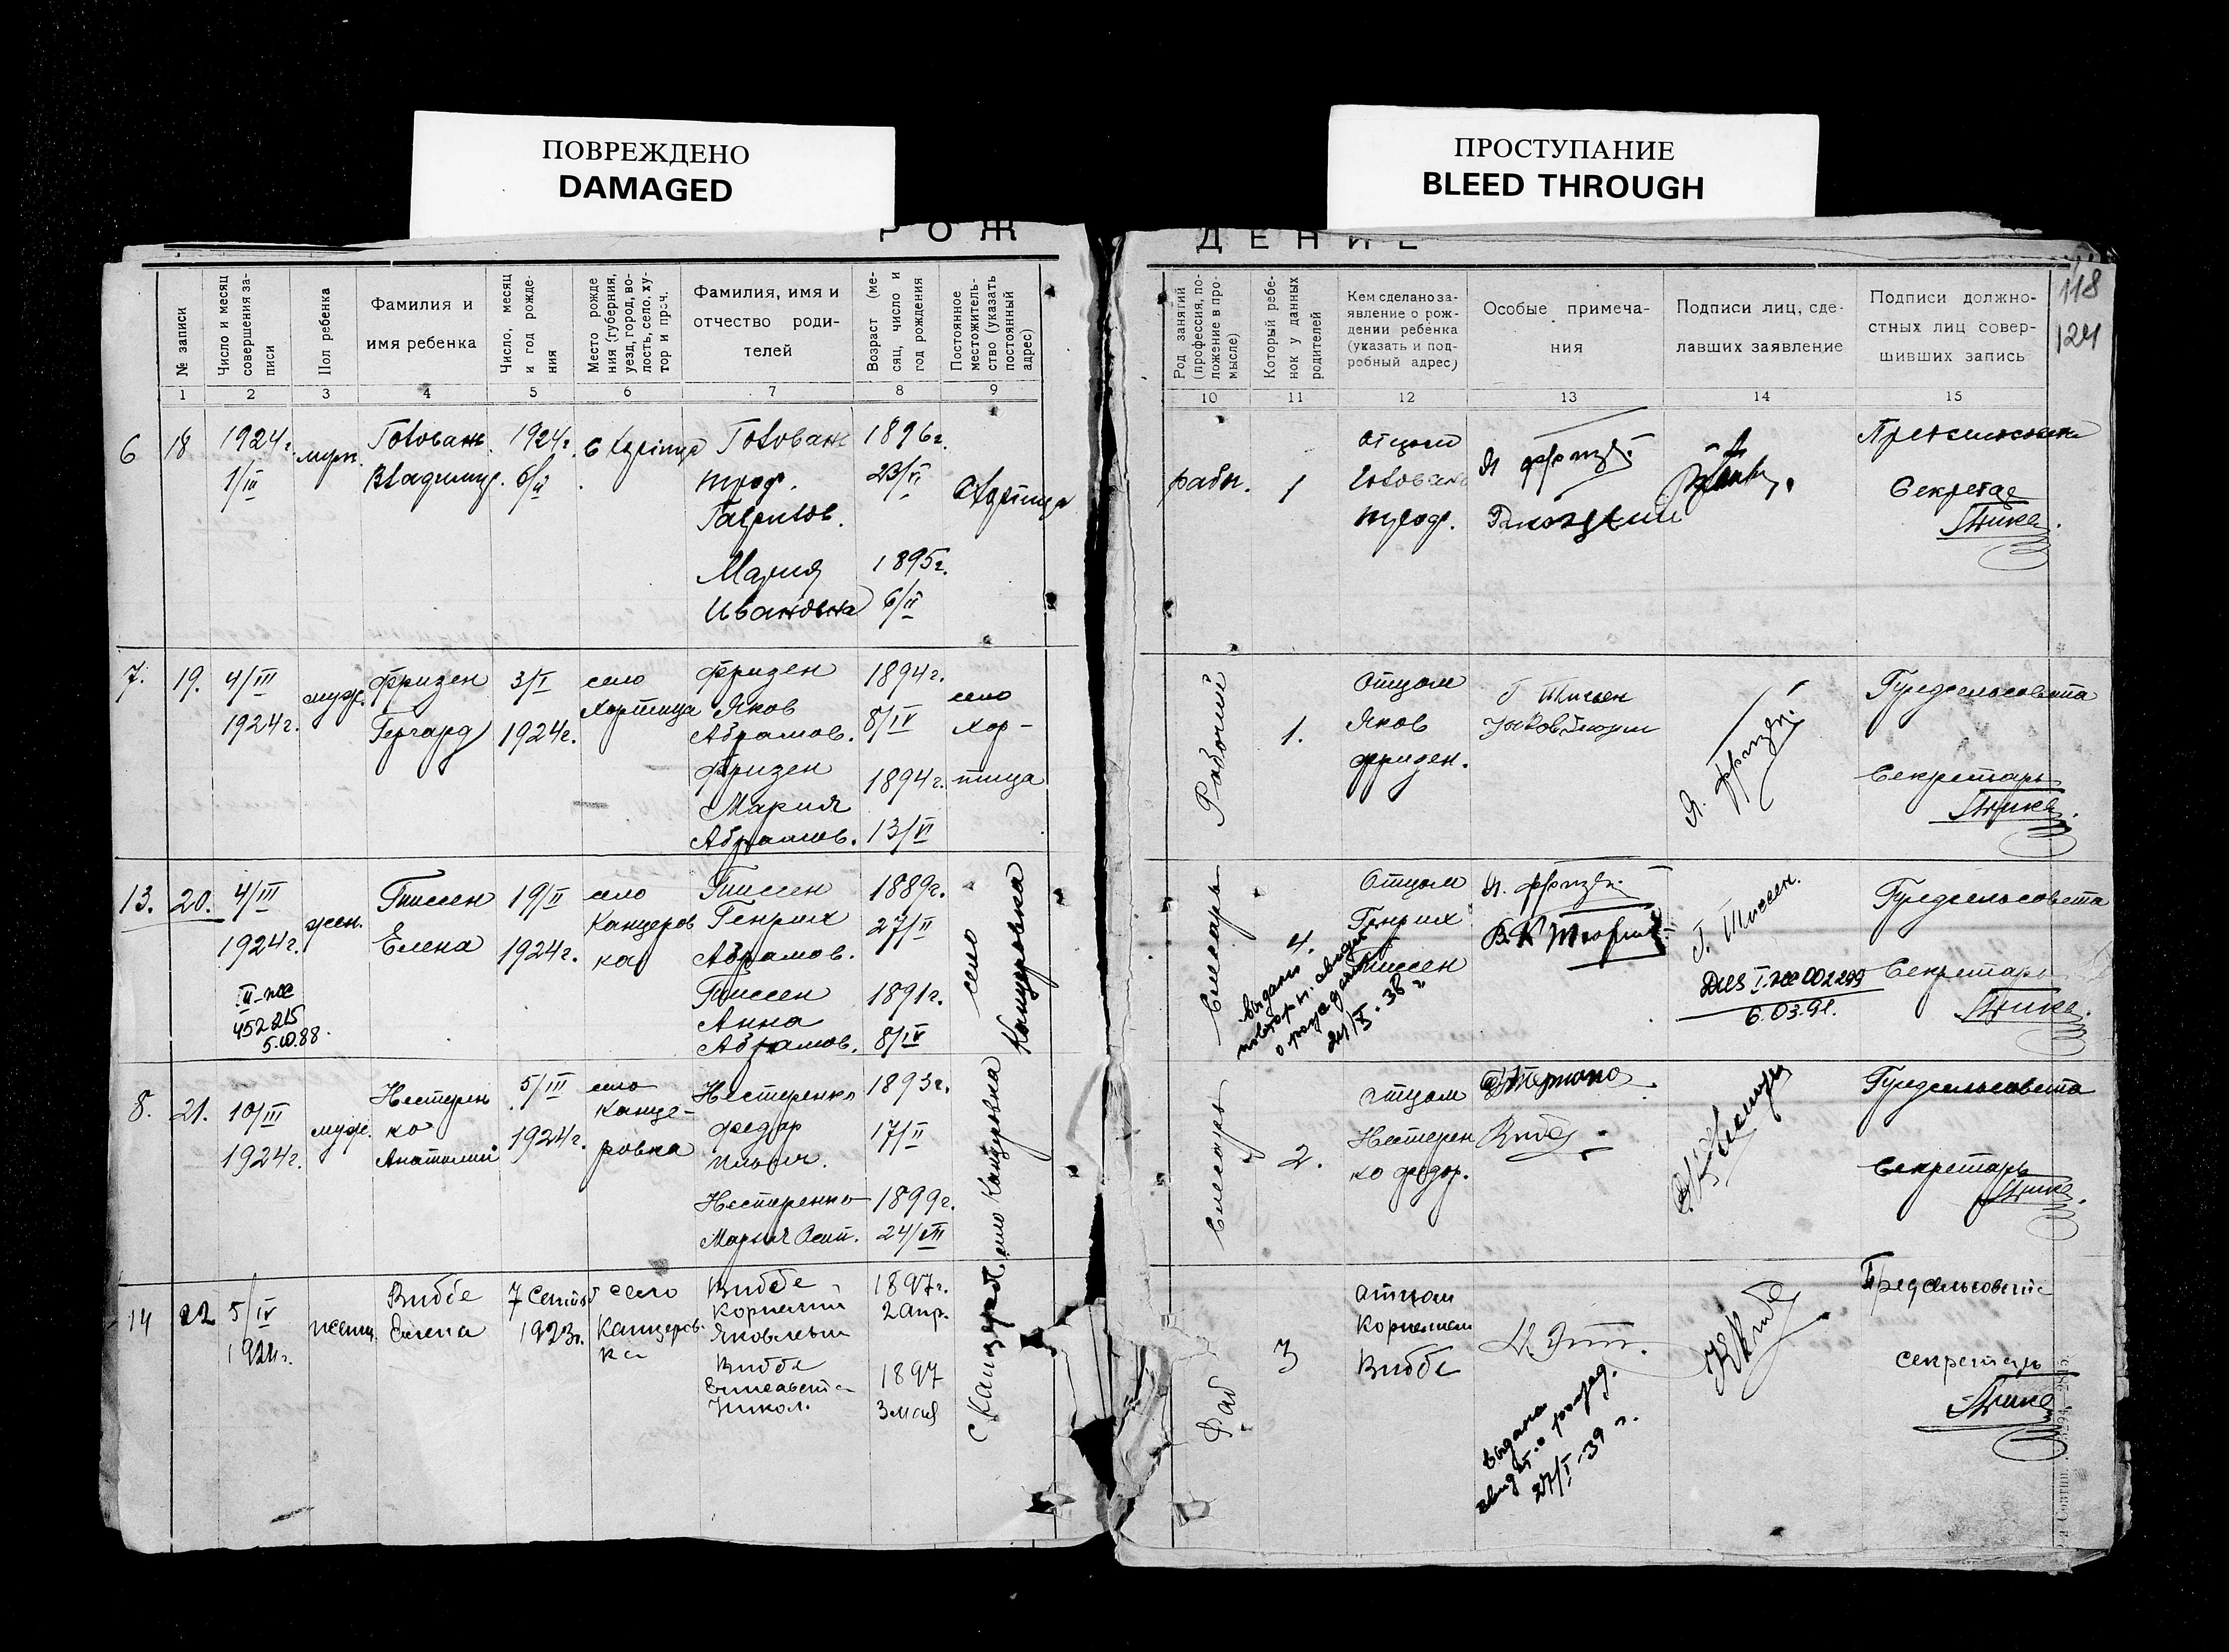 ПОВРЕЖДЕНО
DAMAGED
ПРОСТУПАНИЕ
BLEED THROUGH
РОЖ
ДЕНИЕ
118
124
№ записи
Число и месяц совершения записи
Пол ребенка
Фамилия и
имя ребенка
Число, месяц и год рождения
Место рожде
ния (губерния,
уезд, город, во-
лость, село, ху-
тор и проч.
Фамилия, имя и
отчество роди-
телей
Возраст (ме-
сяц, число и
год рождения
Постоянное
местожитель-
ство (указать
постоянный
адрес)
Род занятий
(профессия, по-
ложение в про-
мысле)
Который ребе-
нок у данных
родителей
Кем сделано за-
явление о рож-
дении ребенка
(указать и под-
робный адрес)
Особые примеча-
ния
Подписи лиц, сде-
лавших заявление
Подписи должно-
стных лиц совер-
шивших запись
1 2 3 4 5 6 7 8 9
10 11 12 13 14 15
6 18
1924г.
1/III
Головань
Владимир.
1924г.
6/II
Головань
Троф.
Гаврилов.
Мария
Ивановна
1896г.
23/VI
1895г.
6/II
рабоч.
1
отцом
Головань
Троф.
Я Фризен
Секретар
7. 19.
4/III
1924г.
муж.
Фризен
Гергард
3/I
1924г.
село
Хортица
Фризен
Яков
Абрамов.
Фризен
Мария
Абрамов.
1894г.
8/IV
1894г.
13/VI
село
Хор-
тица
Рабочий
1.
Отцом
Яков
Фризен.
Г Тиссен
Я. Фризен
Предсельсовета
Секретарь
13. 20.
4/III
1924г.
II-же
452215
5.10.88.
жен.
Тиссен
Елена
19/II
1924г.
село
Канцеров
ка
Тиссен
Генрих
Абрамов.
Тиссен
Анна
Абрамов.
1889г.
27/II
1891г.
8/IV
село
Канцеровка
Слесарь
4.
Отцом
Генрих
Тиссен
выдано
повторн. свидет.
о рождении
21/X.38 г
Я. Фризен
Г. Тиссен.
6.03.91.
Предсельсовета
Секретарь
8. 21.
10/III
1924г.
муж.
Нестерен
ко
Анатолий
5/III
1924г.
село
Канце-
ровка
Нестеренко
Федор
Ильич.
Нестеренко
Мария Осип.
1893г.
17/II
1899г.
24/VII
село Канцеровка
Слесарь
2.
отцом
Нестерен
ко Федор.
Предсельсовета
Секретарь
14 22
5/IV
1924г.
женщ.
Виббе
Елена
7 Сентяб
1923г.
село
Канцеров-
ка
Виббе
Корнелий
Яковлевич
Виббе
Елисавета
Никол.
1897г.
2 апр.
1897
3 мая
с Канцеров
Раб
3
отцом
Корнелием
Виббе
выдана
свид. о рожд.
27/I-39 г.
К Виббе
Предсельсовета
секретарь